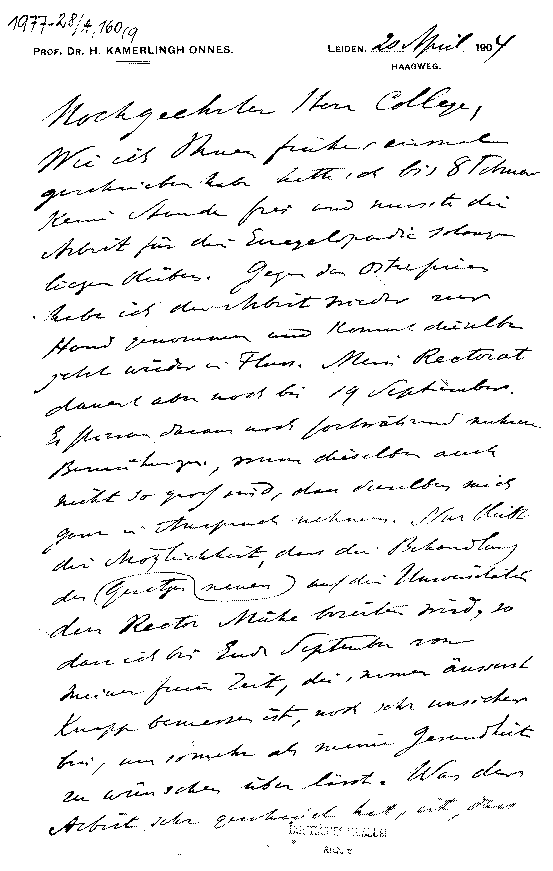 1977-28/A,160/9
PROF. DR. H. KAMERLINGH ONNES.
LEIDEN, 20 April 1904
HAAGWEG.
Hochgeehrter Herr College,
Wie ich Ihnen früher einmal
geschrieben habe hatte ich bis 8 Februar
keine Stunde frei und musste die
Arbeit für die Encyclopaedie solange
liegen bleiben. Gegen die Osterferien
habe ich die Arbeit wieder zur
Hand genommen und kommt dieselbe
jetzt wieder in Fluss. Mein Rectorat
dauert aber noch bis 19 September.
Es fliessen daraus noch fortwährend mehrere
Bemühungen, wenn dieselben auch
nicht so gross sind, dass dieselben mich
ganz in Anspruch nehmen. Nur bleibt
die Möglichkeit, dass die Behandlung
des Gesetzes neuen auf die Universitäten
dem Rector Mühe bereiten wird, so
dass ich bis Ende September von
meiner freien Zeit, die immer äusserst
knapp bemessen ist, noch sehr unsicher
bin, um so mehr als meine Gesundheit
zu wünschen über lässt. Was der
Arbeit sehr geschadet hat, ist, dass